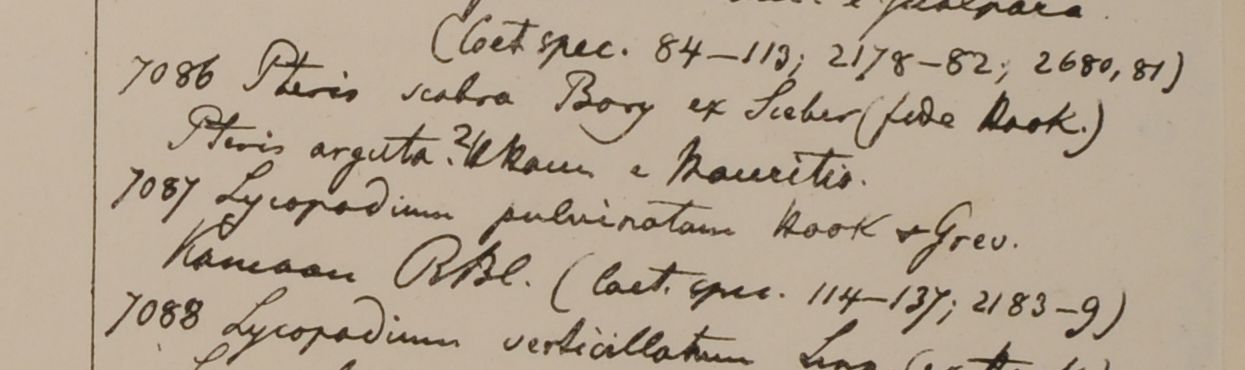 e Gualpara
(Caet spec. 84–113; 2178–82; 2680, 81)
7086 Pteris scabra Bory ex Sieber (fide Hook.)
Pteris arguta ? e Mauritio.
7087 Lycopodium pulvinatum Hook & Grev.
Kamaon RBl. (Caet. spec. 114–137; 2183–9)
7088 Lycopodium verticillatum Linn